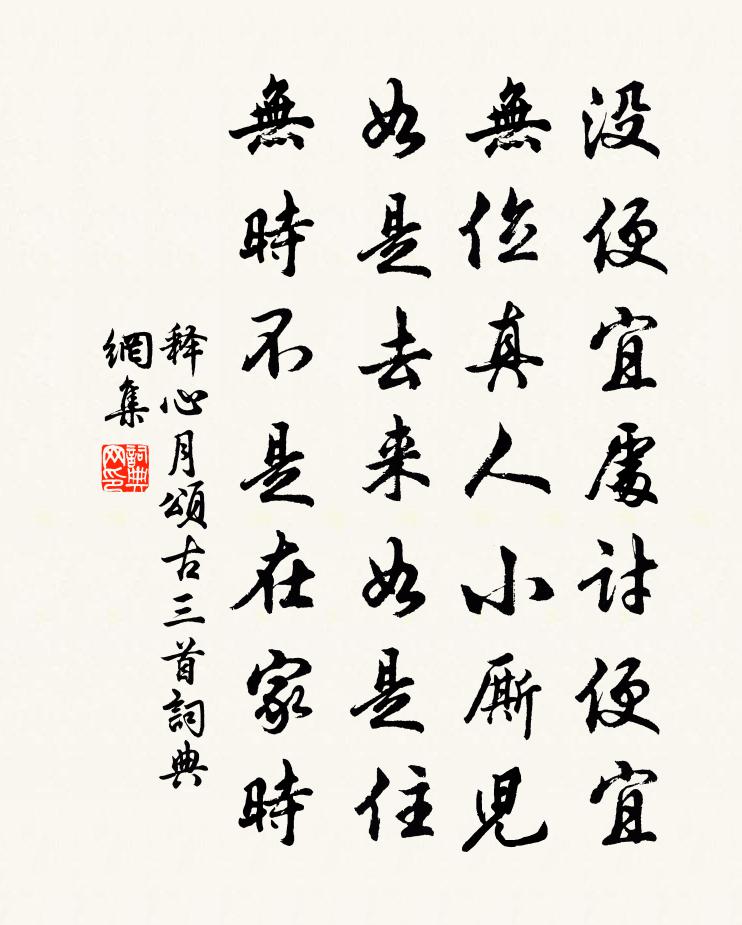 没便宜處討便宜
無位真人小厮兒
如是去来如是住
無時不是在家時
释心月頌古三首詞典
網集
詞典
网印